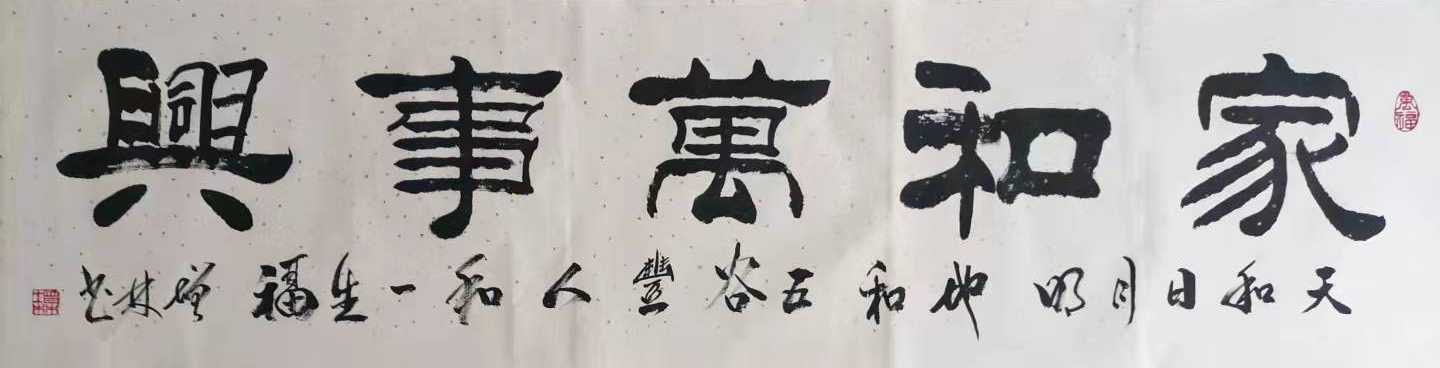 家和萬事興
天和日月明地和五谷豐人和一生福增林书